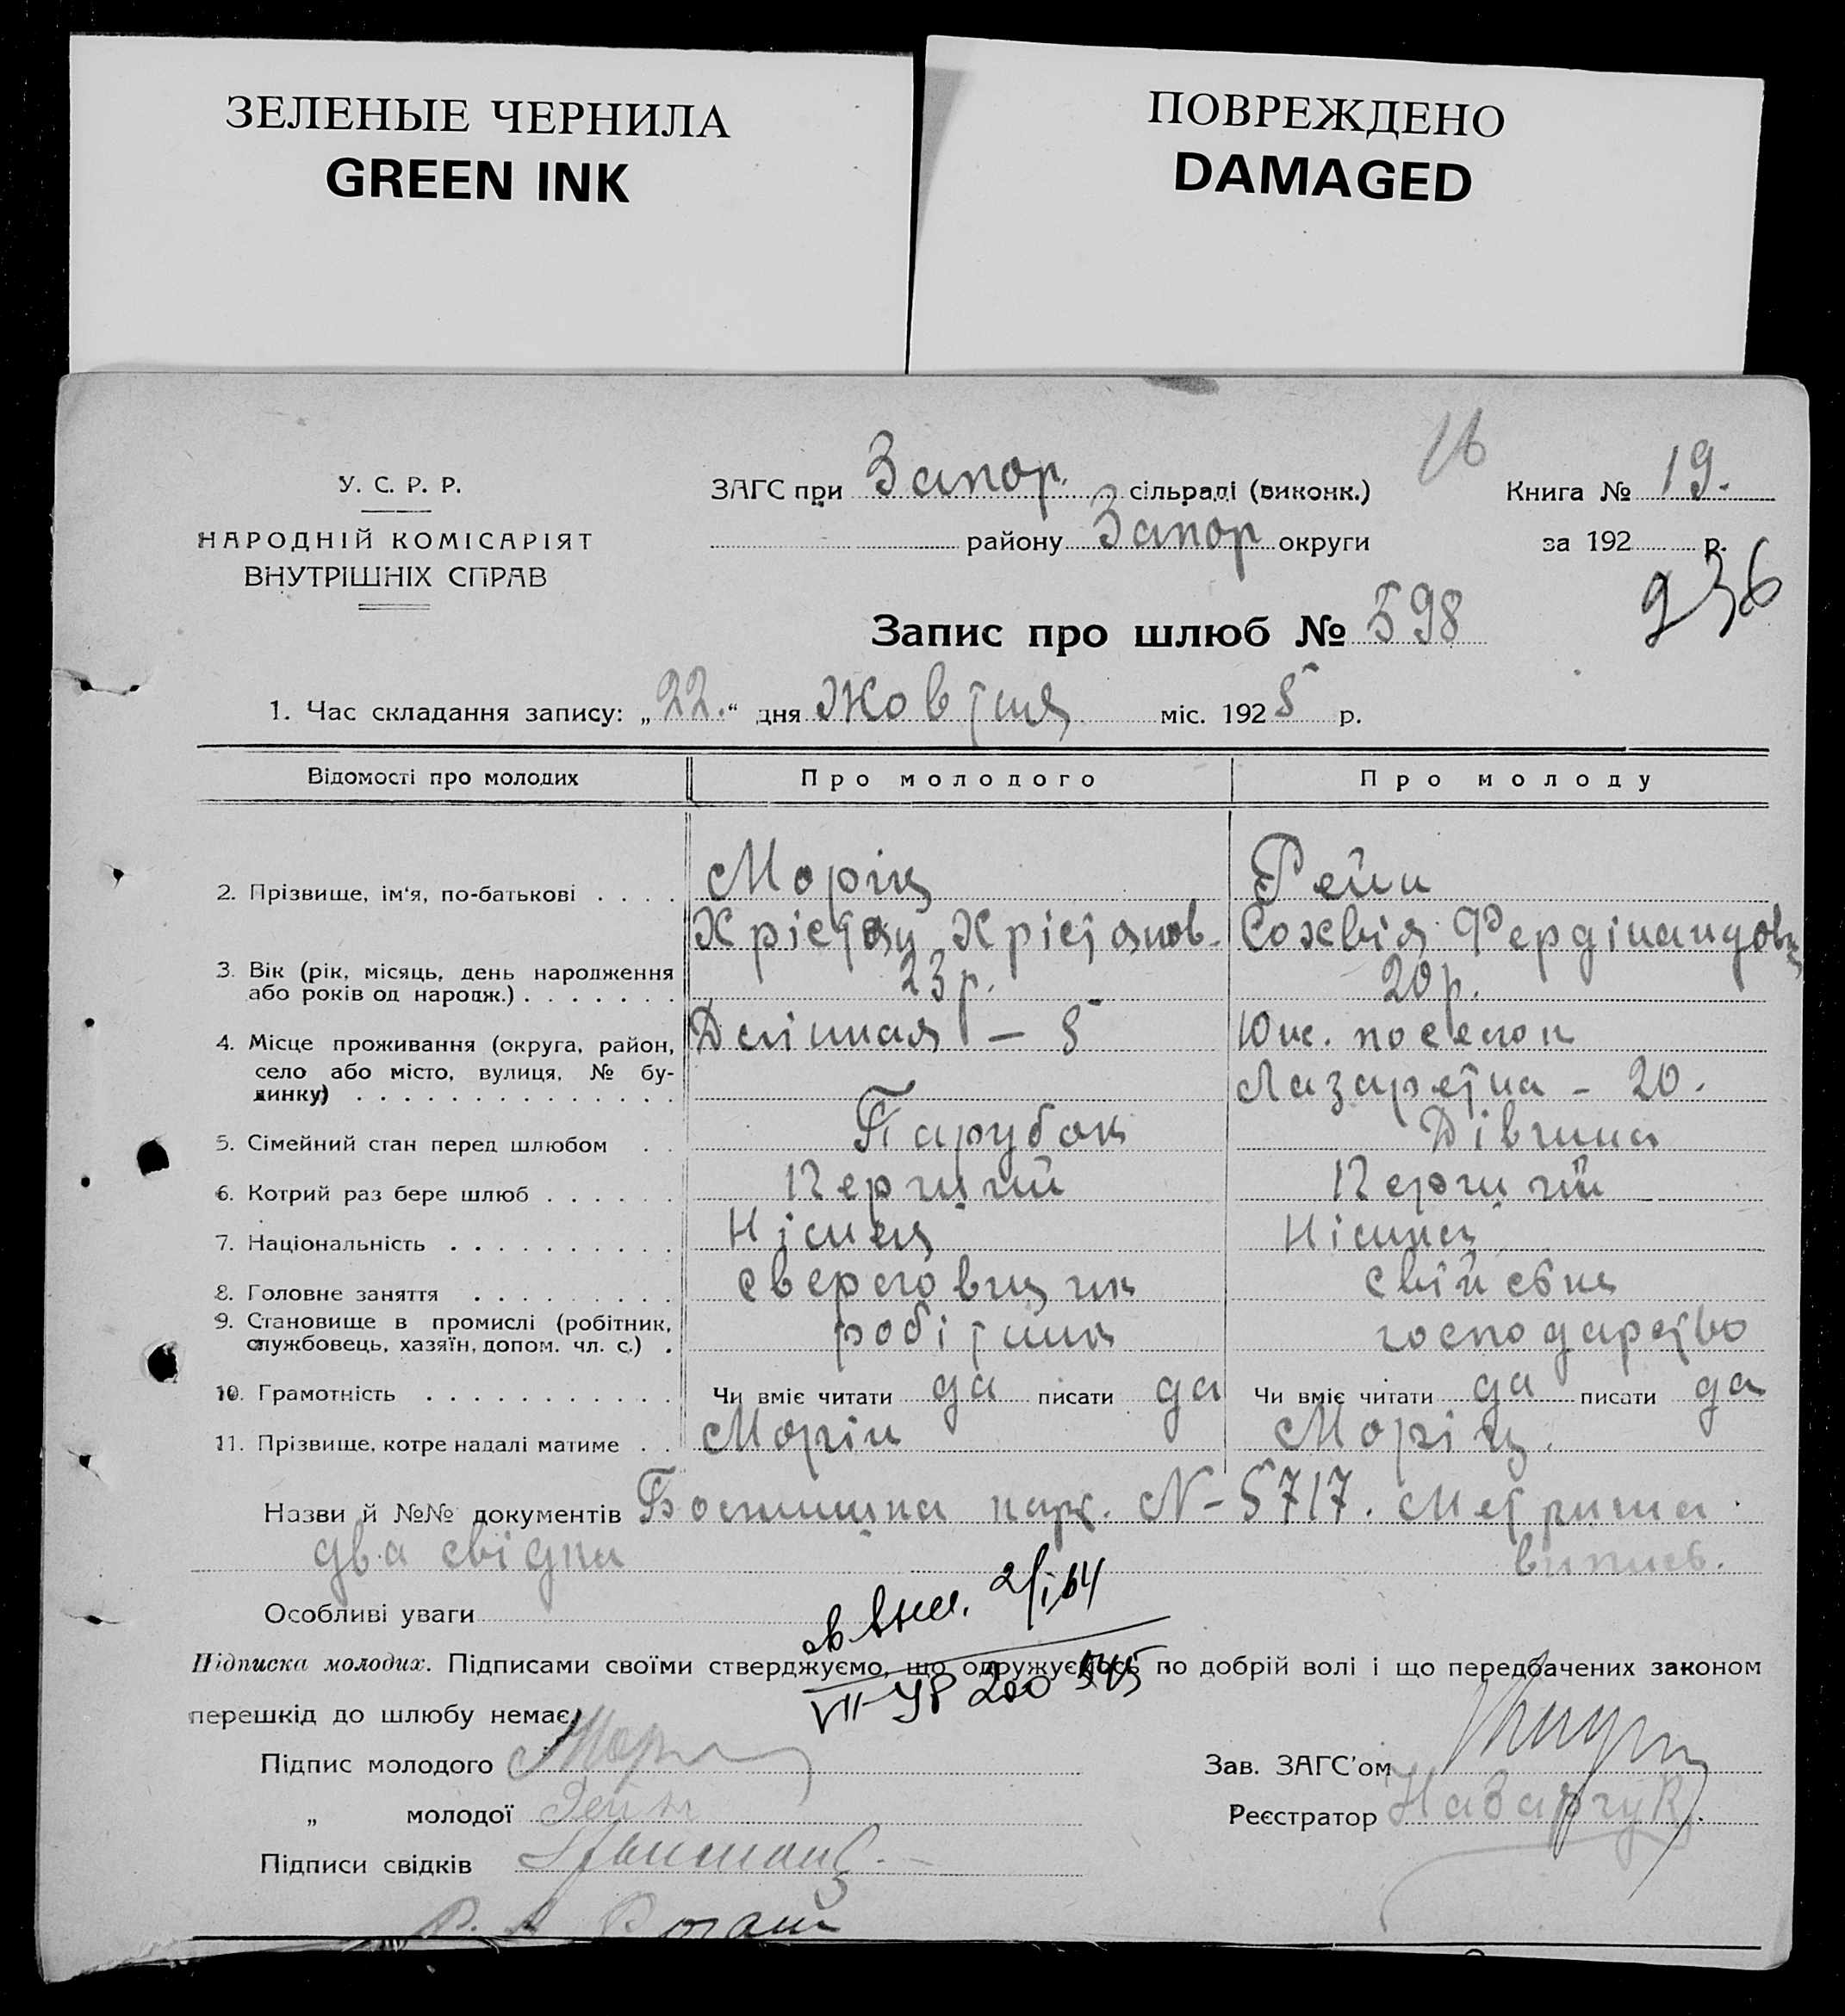 ЗЕЛЕНЫЕ ЧЕРНИЛА
GREEN INK
ПОВРЕЖДЕНО
DAMAGED
16
У. С. Р. Р.
НАРОДНІЙ КОМІСАРІЯТ
ВНУТРІШНІХ СПРАВ
ЗАГС при Запор. сільраді (виконк.)
району Запор округи
Книга № 19.
за 192 р.
236
Запис про шлюб № 598
1. Час складання запису: „22.“ дня Жовтня міс. 1925 р.
Відомості про молодих Про молодого Про молоду
2. Прізвище, ім'я, по-батькові . . . . Моріц Рейн
Крістян Крістянов. Софія Фердінандовн
3. Вік (рік, місяць, день народження
або років од народж.) . . . . . . . 23 р. 20 р.
4. Місце проживання (округа, район,
село або місто, вулиця, № бу-
динку) . . . . . . . . . . . . . . .
– 5
Юж. поселок
Лазаретна – 20.
5. Сімейний стан перед шлюбом . . Парубок Дівчина
6. Котрий раз бере шлюб . . . . . . Перший Перший
7. Національність . . . . . . . . . . Німец Німка
8. Головне заняття . . . . . . . . . сверловщик свійське
9. Становище в промислі (робітник,
службовець, хазяїн, допом. чл. с.) . робітник господарство
10. Грамотність . . . . . . . . . . . Чи вміє читати да писати да Чи вміє читати да писати да
11. Прізвище, котре надалі матиме . . Моріц Моріц.
Назви й №№ документів карт. № – 5717. Метрична
два свідки випись.
Особливі уваги
2/I 64
Підписка молодих. Підписами своїми стверджуємо, що одружуємось по добрій волі і що передбачених законом
VII-УР 200
перешкід до шлюбу немає.
Підпис молодого Моріц
„ молодої Рейн
Підписи свідків
Зав. ЗАГС'ом
Реєстратор Назарчук